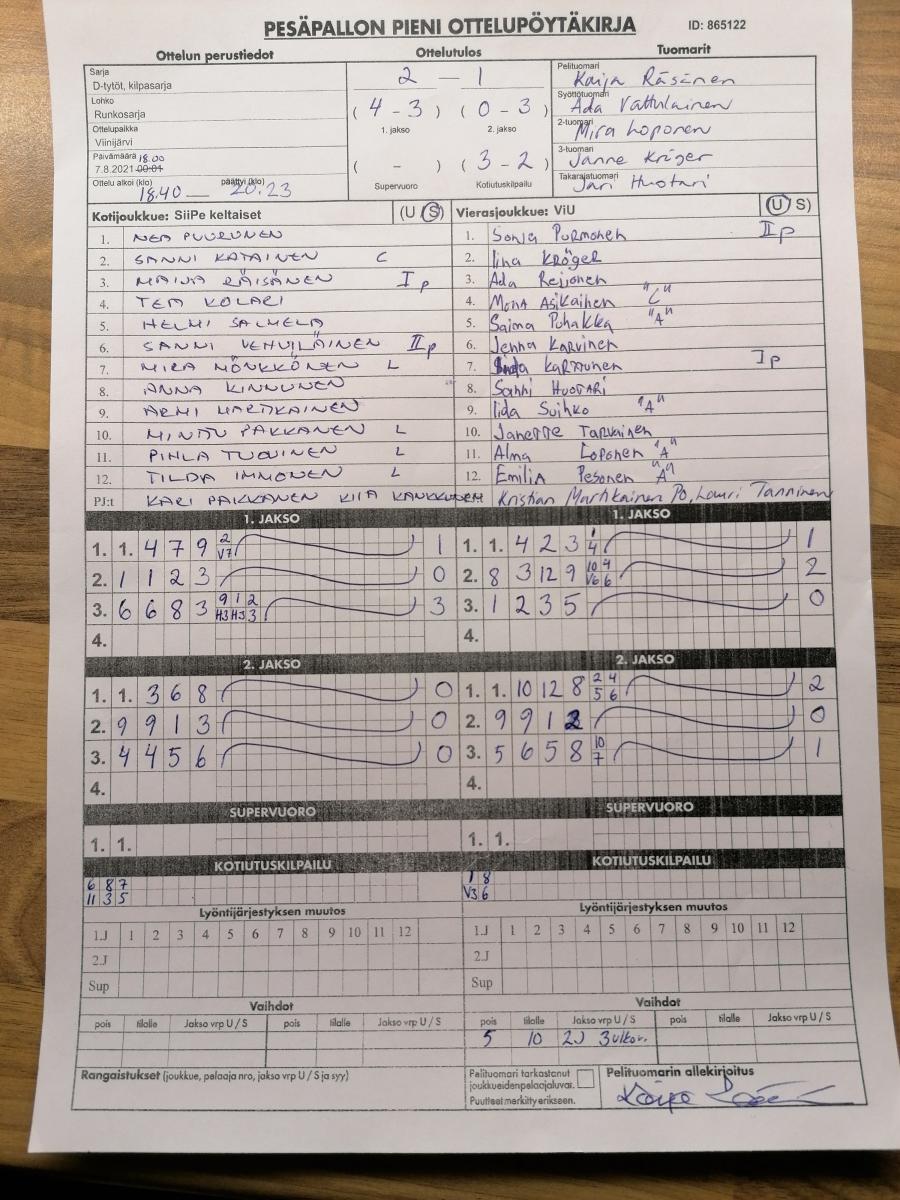 PESÄPALLON PIENI OTTELUPÖYTÄKIRJA
ID: 865122
Ottelun perustiedot
Ottelutulos
Tuomarit
Sarja
D-tytöt, kilpasarja
Lohko
Runkosarja
Ottelupaikka
Viinijärvi
Päivämäärä 18.00
7.8.2021 00:01
Ottelu alkoi (klo) päättyi (klo)
18.40 — 20.23
2 — 1
( 4 - 3 ) ( 0 - 3 )
1. jakso 2. jakso
( - ) ( 3 - 2 )
Supervuoro Kotiutuskilpailu
Pelituomari
Kaija Räsänen
Syöttötuomari
Ada Vattulainen
2-tuomari
Mira Loponen
3-tuomari
Janne Kröger
Takarajatuomari
Jari Huotari
Kotijoukkue: SiiPe keltaiset (U S)
1. NEA PUURUNEN
2. SANNI KATAINEN C
3. MAIJA RÄISÄNEN I p
4. TEA KOLARI
5. HELMI SALMELA
6. SANNI VEHVILÄINEN II p
7. MIRA MÖNKKÖNEN L
8. ANNA KINNUNEN
9. ARMI MARTIKAINEN
10. MINTTU PAKKANEN L
11. PIHLA TUOVINEN L
12. TILDA IMMONEN L
PJ:t KARI PAKKANEN KIIA KANKKUNEN
Vierasjoukkue: ViU (U S)
1. Sonja Purmonen II p
2. Iina KRÖGER
3. Ada Reijonen
4. Mona Asikainen "C"
5. Saima Puhakka "A"
6. Jenna Karvinen
7. Karttunen I p
8. Sanni HUOTARI
9. Iida Suihko "A"
10. Janette Tarvainen
11. Alma Loponen "A"
12. Emilia Pesonen "A"
Kristian Martikainen PO, Lauri Tanninen
1. JAKSO
1. 1. 4 7 9 2 V7 1
2. 1 1 2 3 0
3. 6 6 8 3 9 1 2 H3 H3 3 3
4.
1. JAKSO
1. 1. 4 2 3 1 4 1
2. 8 3 12 9 10 4 V6 6 2
3. 1 2 3 5 0
4.
2. JAKSO
1. 1. 3 6 8 0
2. 9 9 1 3 0
3. 4 4 5 6 0
4.
2. JAKSO
1. 1. 10 12 8 2 4 5 6 2
2. 9 9 1 2 0
3. 5 6 5 8 10 7 1
4.
SUPERVUORO
1. 1.
SUPERVUORO
1. 1.
KOTIUTUSKILPAILU
6 8 7
11 3 5
KOTIUTUSKILPAILU
1 8
V3 6
Lyöntijärjestyksen muutos
1.J 1 2 3 4 5 6 7 8 9 10 11 12
2.J
Sup
Lyöntijärjestyksen muutos
1.J 1 2 3 4 5 6 7 8 9 10 11 12
2.J
Sup
Vaihdot
pois tilalle Jakso vrp U / S pois tilalle Jakso vrp U / S
Vaihdot
pois tilalle Jakso vrp U / S pois tilalle Jakso vrp U / S
5 10 2J 3ulkov.
Rangaistukset (joukkue, pelaaja nro, jakso vrp U / S ja syy)
Pelituomari tarkastanut
joukkueidenpelaajaluvat.
Puutteet merkitty erikseen.
Pelituomarin allekirjoitus
Kaija